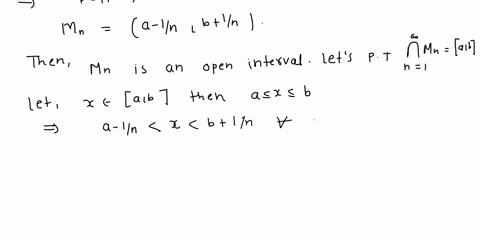 ⇒
Mn = (a-1/n, b+1/n).
Then, Mn is an open interval. let's P.T ∞⋂n=1 Mn = [a,b]
let, x ∈ [a,b] then a ≤ x ≤ b
⇒ a-1/n < x < b+1/n ∀